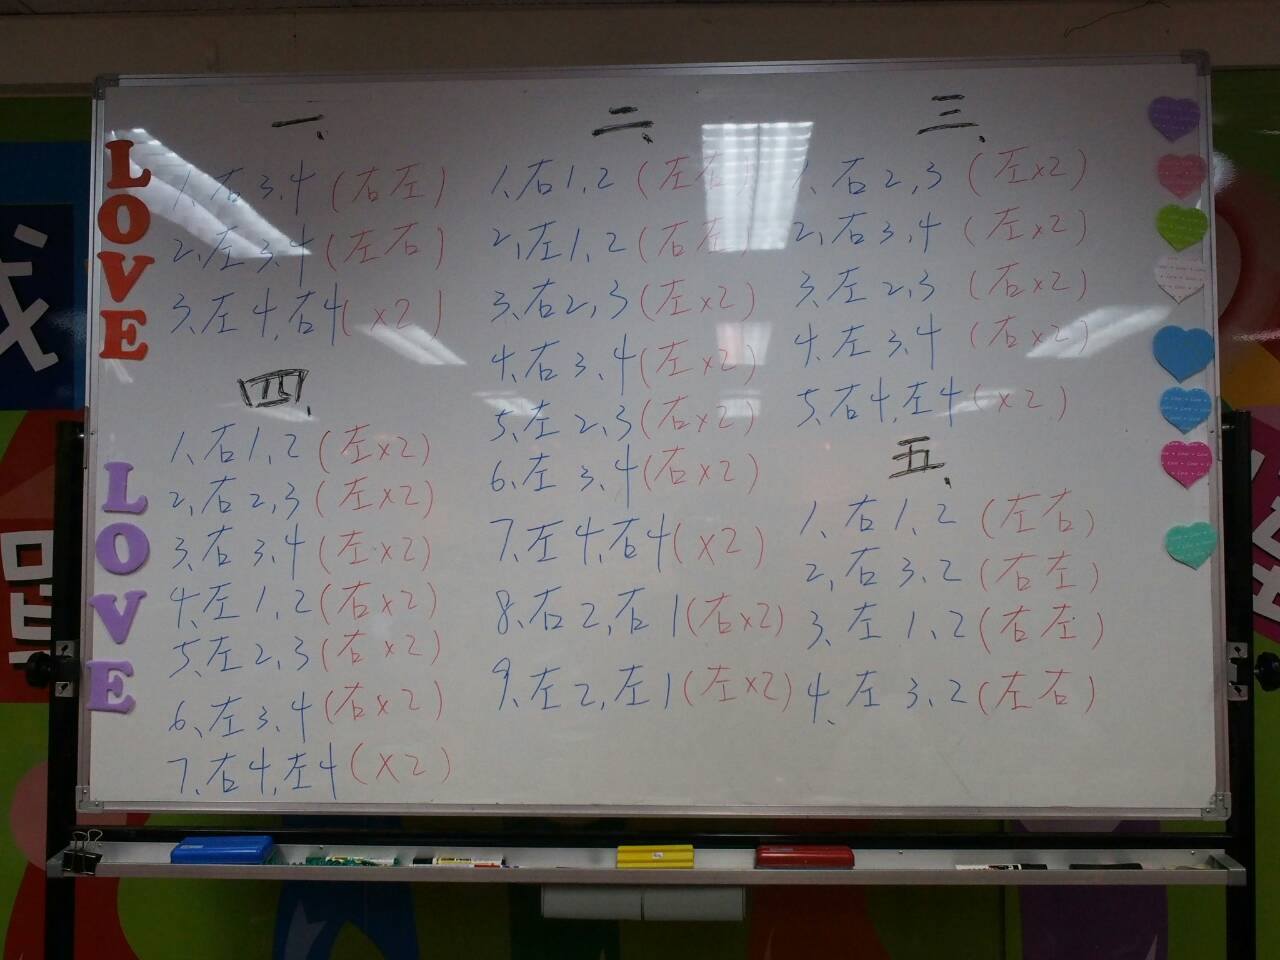 一、
1、右3、4(右左)
2、左3、4(左右)
3、左4、右4(×2)
二、
1、右1、2(左右)
2、左1、2(右左)
3、右2、3(左×2)
4、右3、4(左×2)
5、左2、3(右×2)
6、左3、4(右×2)
7、左4、右4(×2)
8、右2、右1(右×2)
9、左2、左1(左×2)
三、
1、右2、3(左×2)
2、右3、4(左×2)
3、左2、3(右×2)
4、左3、4(右×2)
5、右4、左4(×2)
四、
1、右1、2(左×2)
2、右2、3(左×2)
3、右3、4(左×2)
4、左1、2(右×2)
5、左2、3(右×2)
6、左3、4(右×2)
7、右4、左4(×2)
五、
1、右1、2(左右)
2、右3、2(右左)
3、左1、2(右左)
4、左3、2(左右)
LOVE
LOVE